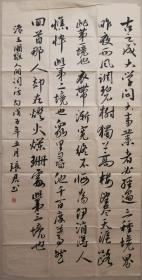 古之成大学问大事业者必经过三种境界
昨夜西风凋碧樹獨上高楼望尽天涯路
此第一境也衣带渐宽终不悔为伊消得人
憔悴此第二境也众里寻他千百度蓦然
回首那人却在燈火阑珊處此第三境也
王国维人间词话 年五月 书